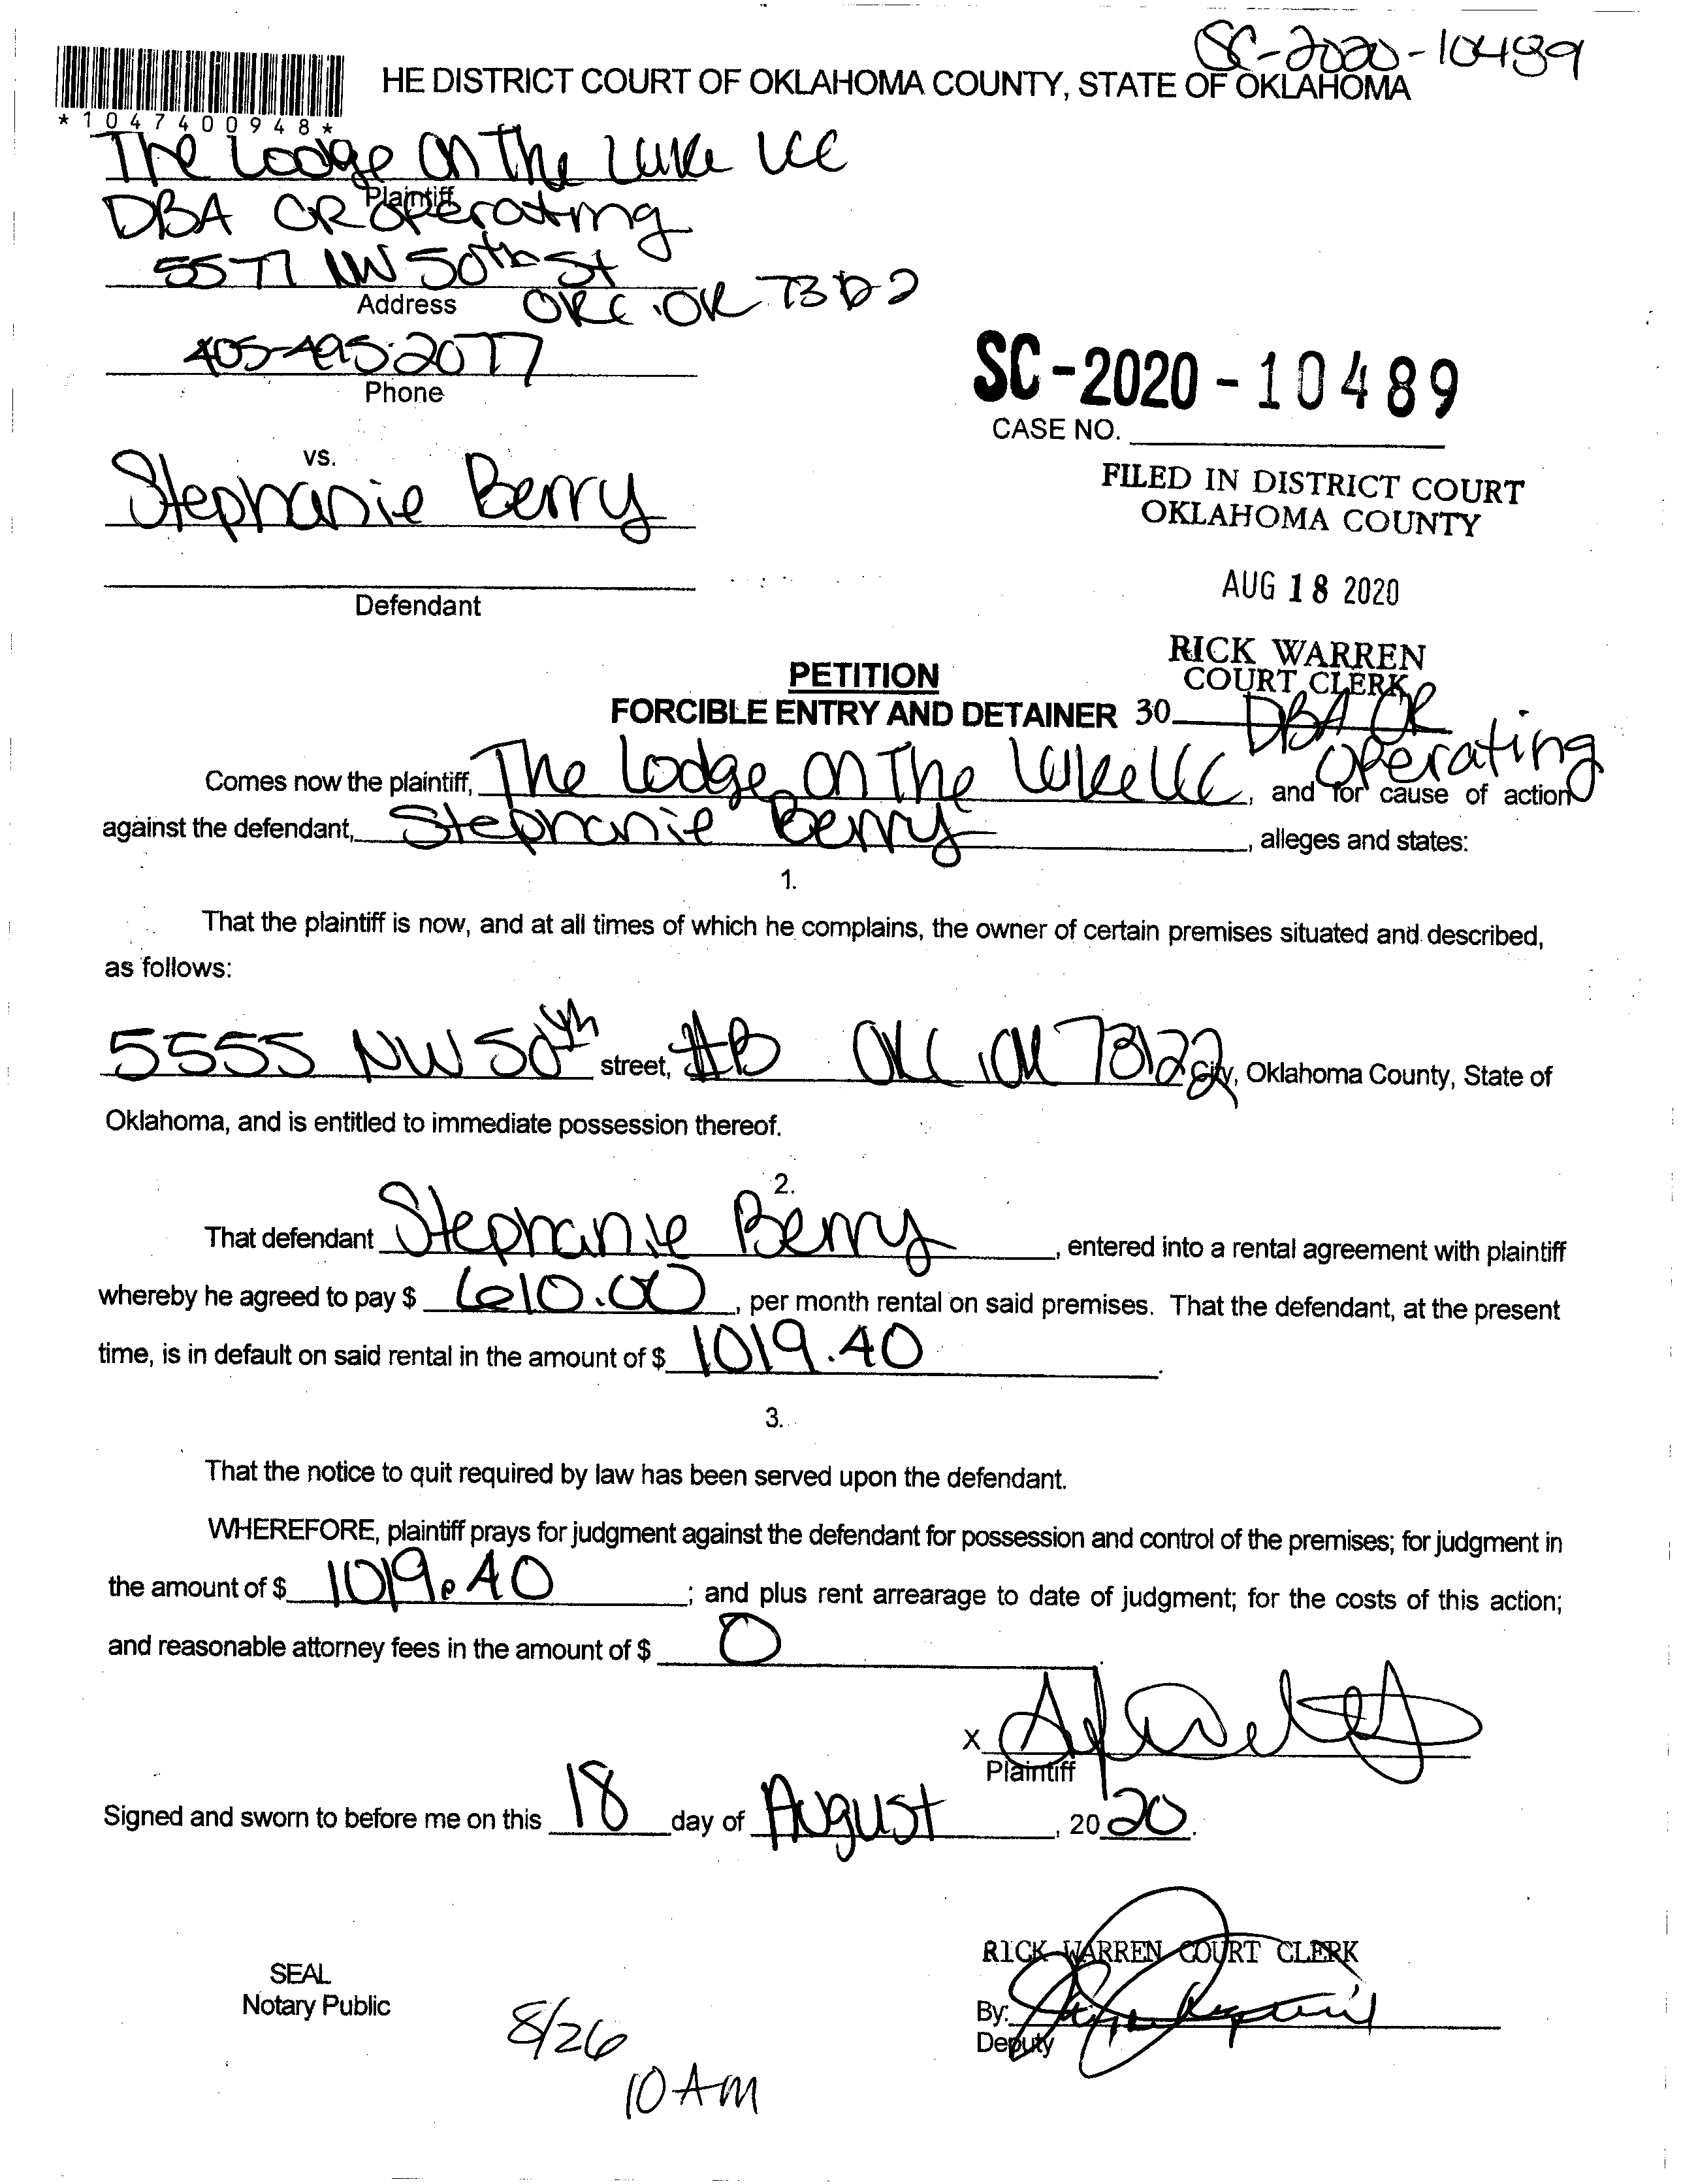 SC-2020-10489
HE DISTRICT COURT OF OKLAHOMA COUNTY, STATE OF OKLAHOMA
*1047400948*
The Lodge on the Lake LLC
Plaintiff
DBA CR Operating
5577 NW 50th St
Address
OKC OK 73122
405-495-2077
Phone
SC-2020-10489
CASE NO.
vs.
Stephanie Berry
FILED IN DISTRICT COURT
OKLAHOMA COUNTY
AUG 18 2020
Defendant
RICK WARREN
COURT CLERK
PETITION
FORCIBLE ENTRY AND DETAINER 30
DBA CR
Operating
Comes now the plaintiff, The Lodge on The Lake LLC, and for cause of action
against the defendant, Stephanie Berry, alleges and states:
1.
That the plaintiff is now, and at all times of which he complains, the owner of certain premises situated and described,
as follows:
5555 NW 50th street, #B OKC, OK 73122 City, Oklahoma County, State of
Oklahoma, and is entitled to immediate possession thereof.
2.
That defendant Stephanie Berry, entered into a rental agreement with plaintiff
whereby he agreed to pay $ 610.00, per month rental on said premises. That the defendant, at the present
time, is in default on said rental in the amount of $ 1019.40.
3.
That the notice to quit required by law has been served upon the defendant.
WHEREFORE, plaintiff prays for judgment against the defendant for possession and control of the premises; for judgment in
the amount of $ 1019.40; and plus rent arrearage to date of judgment; for the costs of this action;
and reasonable attorney fees in the amount of $ 0
X
Plaintiff
Signed and sworn to before me on this 18 day of August, 2020.
RICK WARREN COURT CLERK
SEAL
Notary Public
By:
Deputy
8/26
10 AM